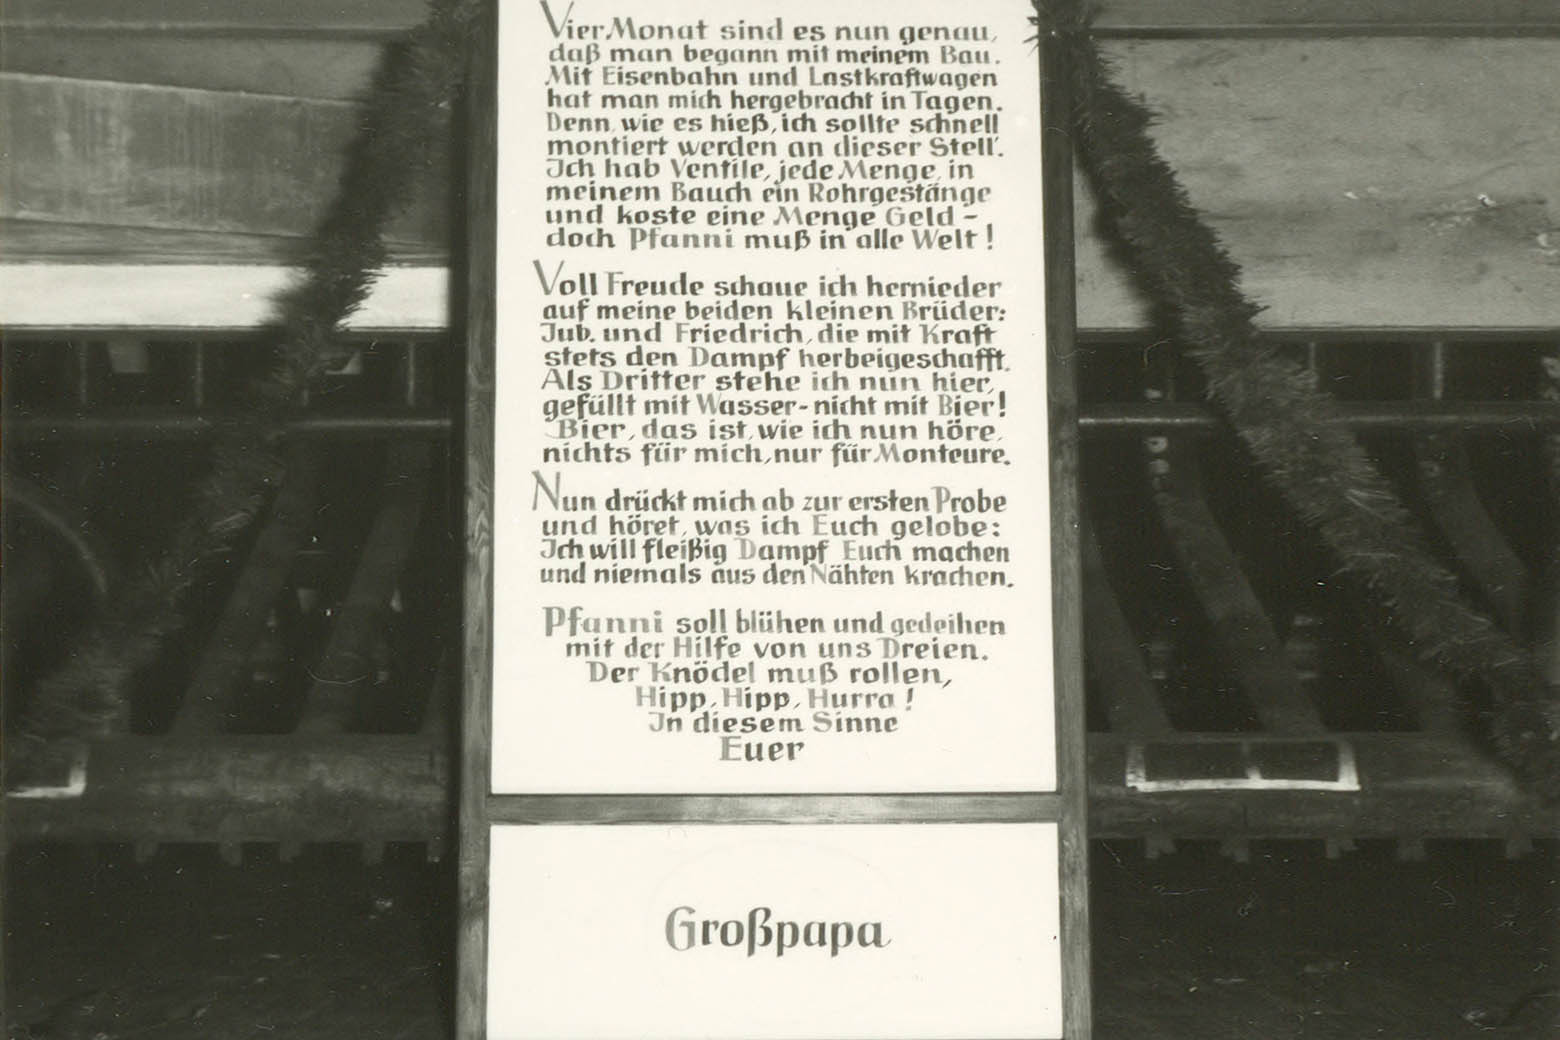 Vier Monat sind es nun genau,
daß man begann mit meinem Bau.
Mit Eisenbahn und Lastkraftwagen
hat man mich hergebracht in Tagen.
Denn, wie es hieß, ich sollte schnell
montiert werden an dieser Stell'.
Ich hab Ventile, jede Menge, in
meinem Bauch ein Rohrgestänge
und koste eine Menge Geld -
doch Pfanni muß in alle Welt!
Voll Freude schaue ich hernieder
auf meine beiden kleinen Brüder:
Jub. und Friedrich, die mit Kraft
stets den Dampf herbeigeschafft.
Als Dritter stehe ich nun hier,
gefüllt mit Wasser - nicht mit Bier!
Bier, das ist, wie ich nun höre,
nichts für mich, nur für Monteure.
Nun drückt mich ab zur ersten Probe
und höret, was ich Euch gelobe:
Ich will fleißig Dampf Euch machen
und niemals aus den Nähten krachen.
Pfanni soll blühen und gedeihen
mit der Hilfe von uns Dreien.
Der Knödel muß rollen,
Hipp, Hipp, Hurra!
In diesem Sinne
Euer
Großpapa